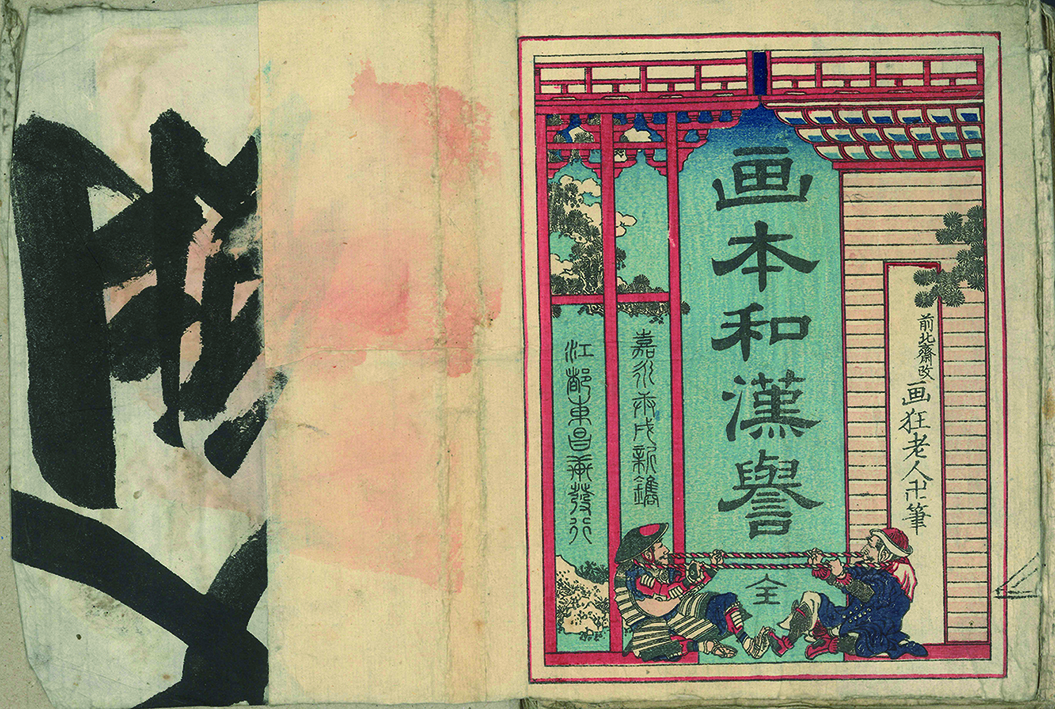 前北齋改画狂老人卍筆
画本和漢譽
全
嘉永庚戌新鐫
江都東昌發行